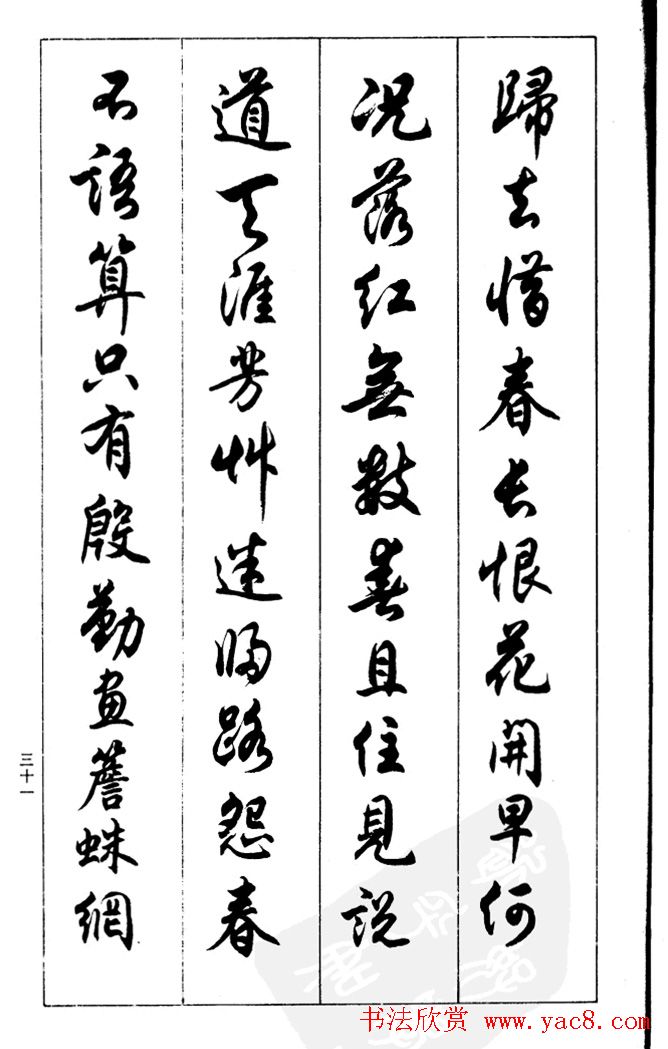 歸去惜春長恨花開早何
況落紅無數春且住見說
道天涯芳艸迷歸路怨春
不語算只有殷勤畫簷蛛網
三十一
书法欣赏 www.yac8.com